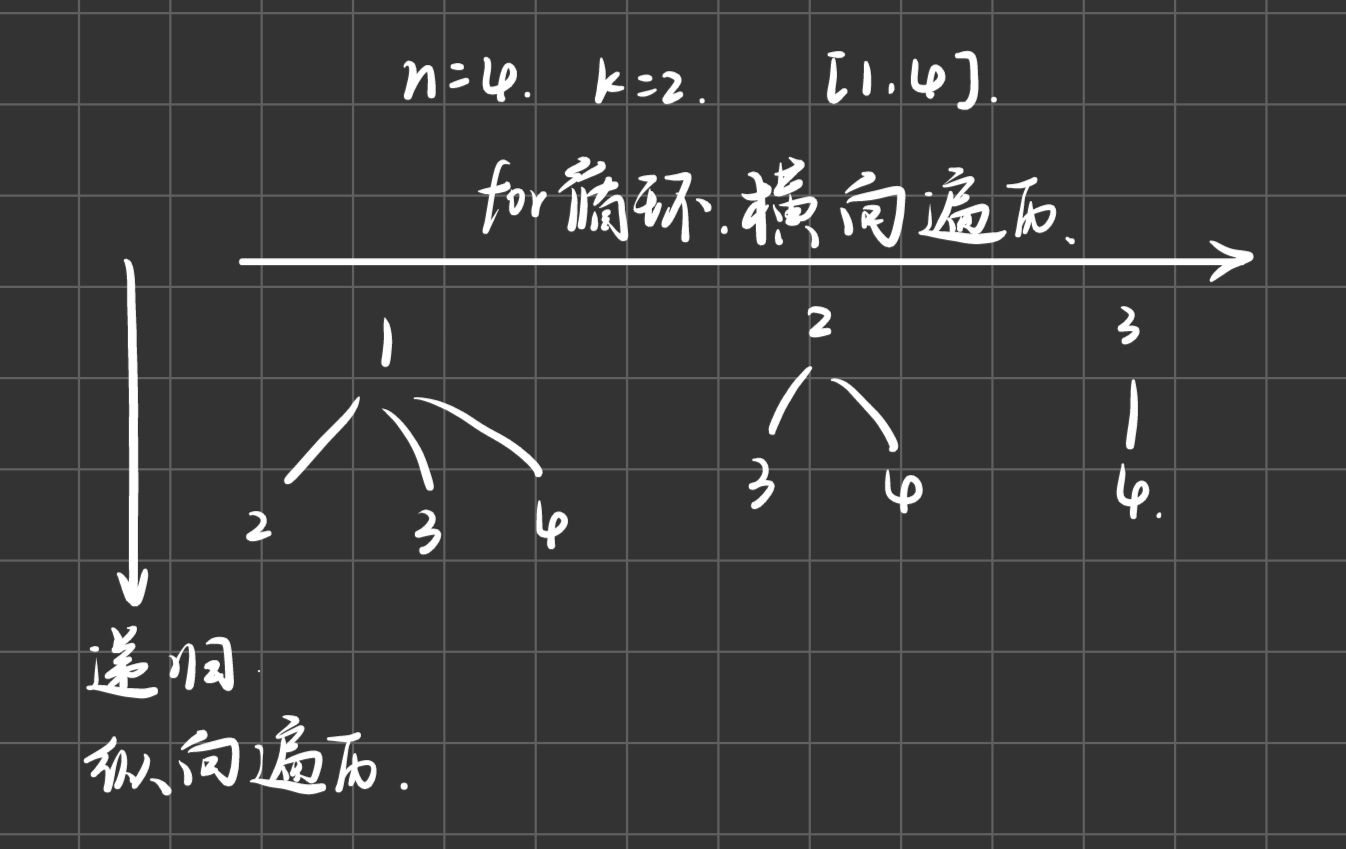 n=4. k=2. [1,4].
for循环.横向遍历、
1
2
3
2 3 4
3 4
4.
递归.
纵向遍历.